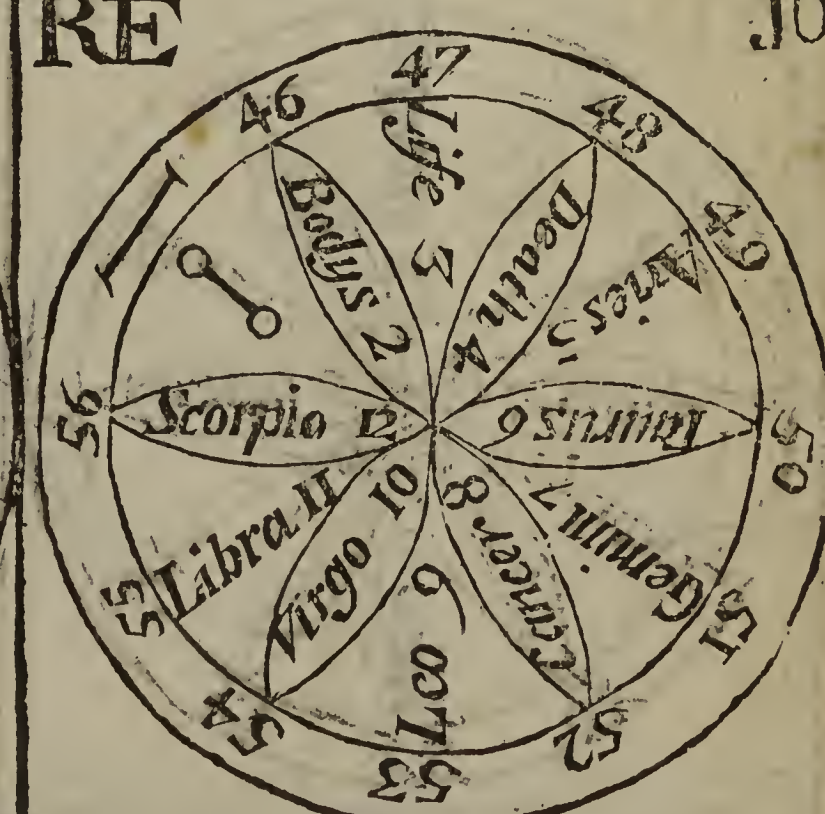 RE
JO
46
47
48
49
50
51
52
53
54
55
56
I
Bodys 2
Life 3
Death 4
Aries 5
Taurus 6
Gemin 7
Cancer 8
Leo 9
Virgo 10
Libra 11
Scorpio 12